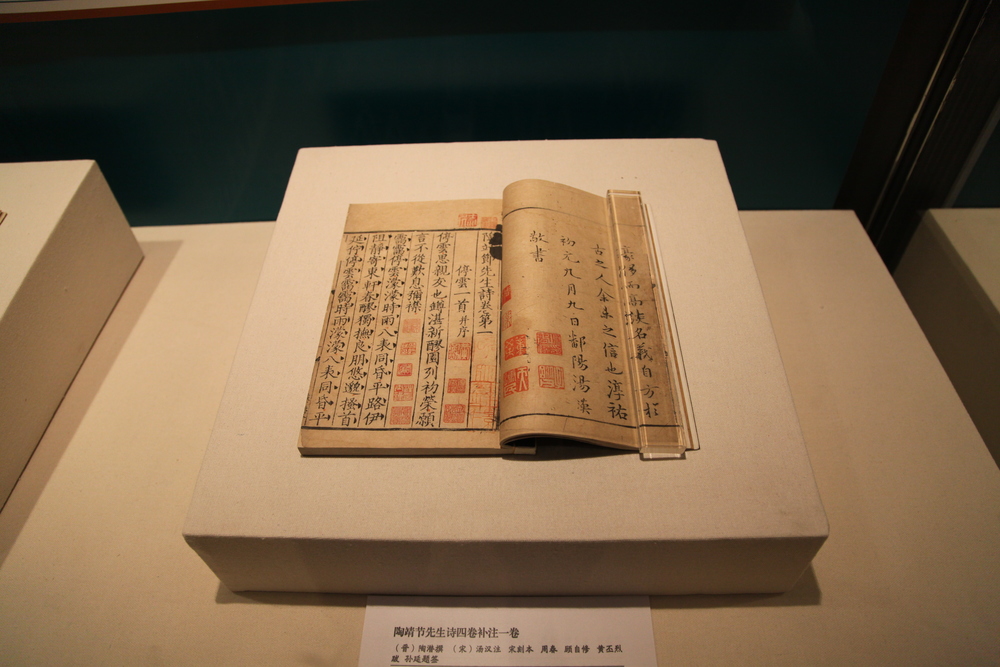 名義自方於
古之人余未之信也淳祐
初元九月九日鄱陽湯漢
敬書
陶靖節先生詩卷第一
停雲一首并序
停雲思親友也罇湛新醪園列初榮願
言不從歎息彌襟
靄靄停雲濛濛時雨八表同昏平路伊
阻靜寄東軒春醪獨撫良朋悠邈搔首
延佇停雲靄靄時雨濛濛八表同昏平
陶靖节先生诗四卷补注一卷
（晋）陶潜撰 （宋）汤汉注 宋刻本 周春 顾自修 黄丕烈
跋 孙延题签